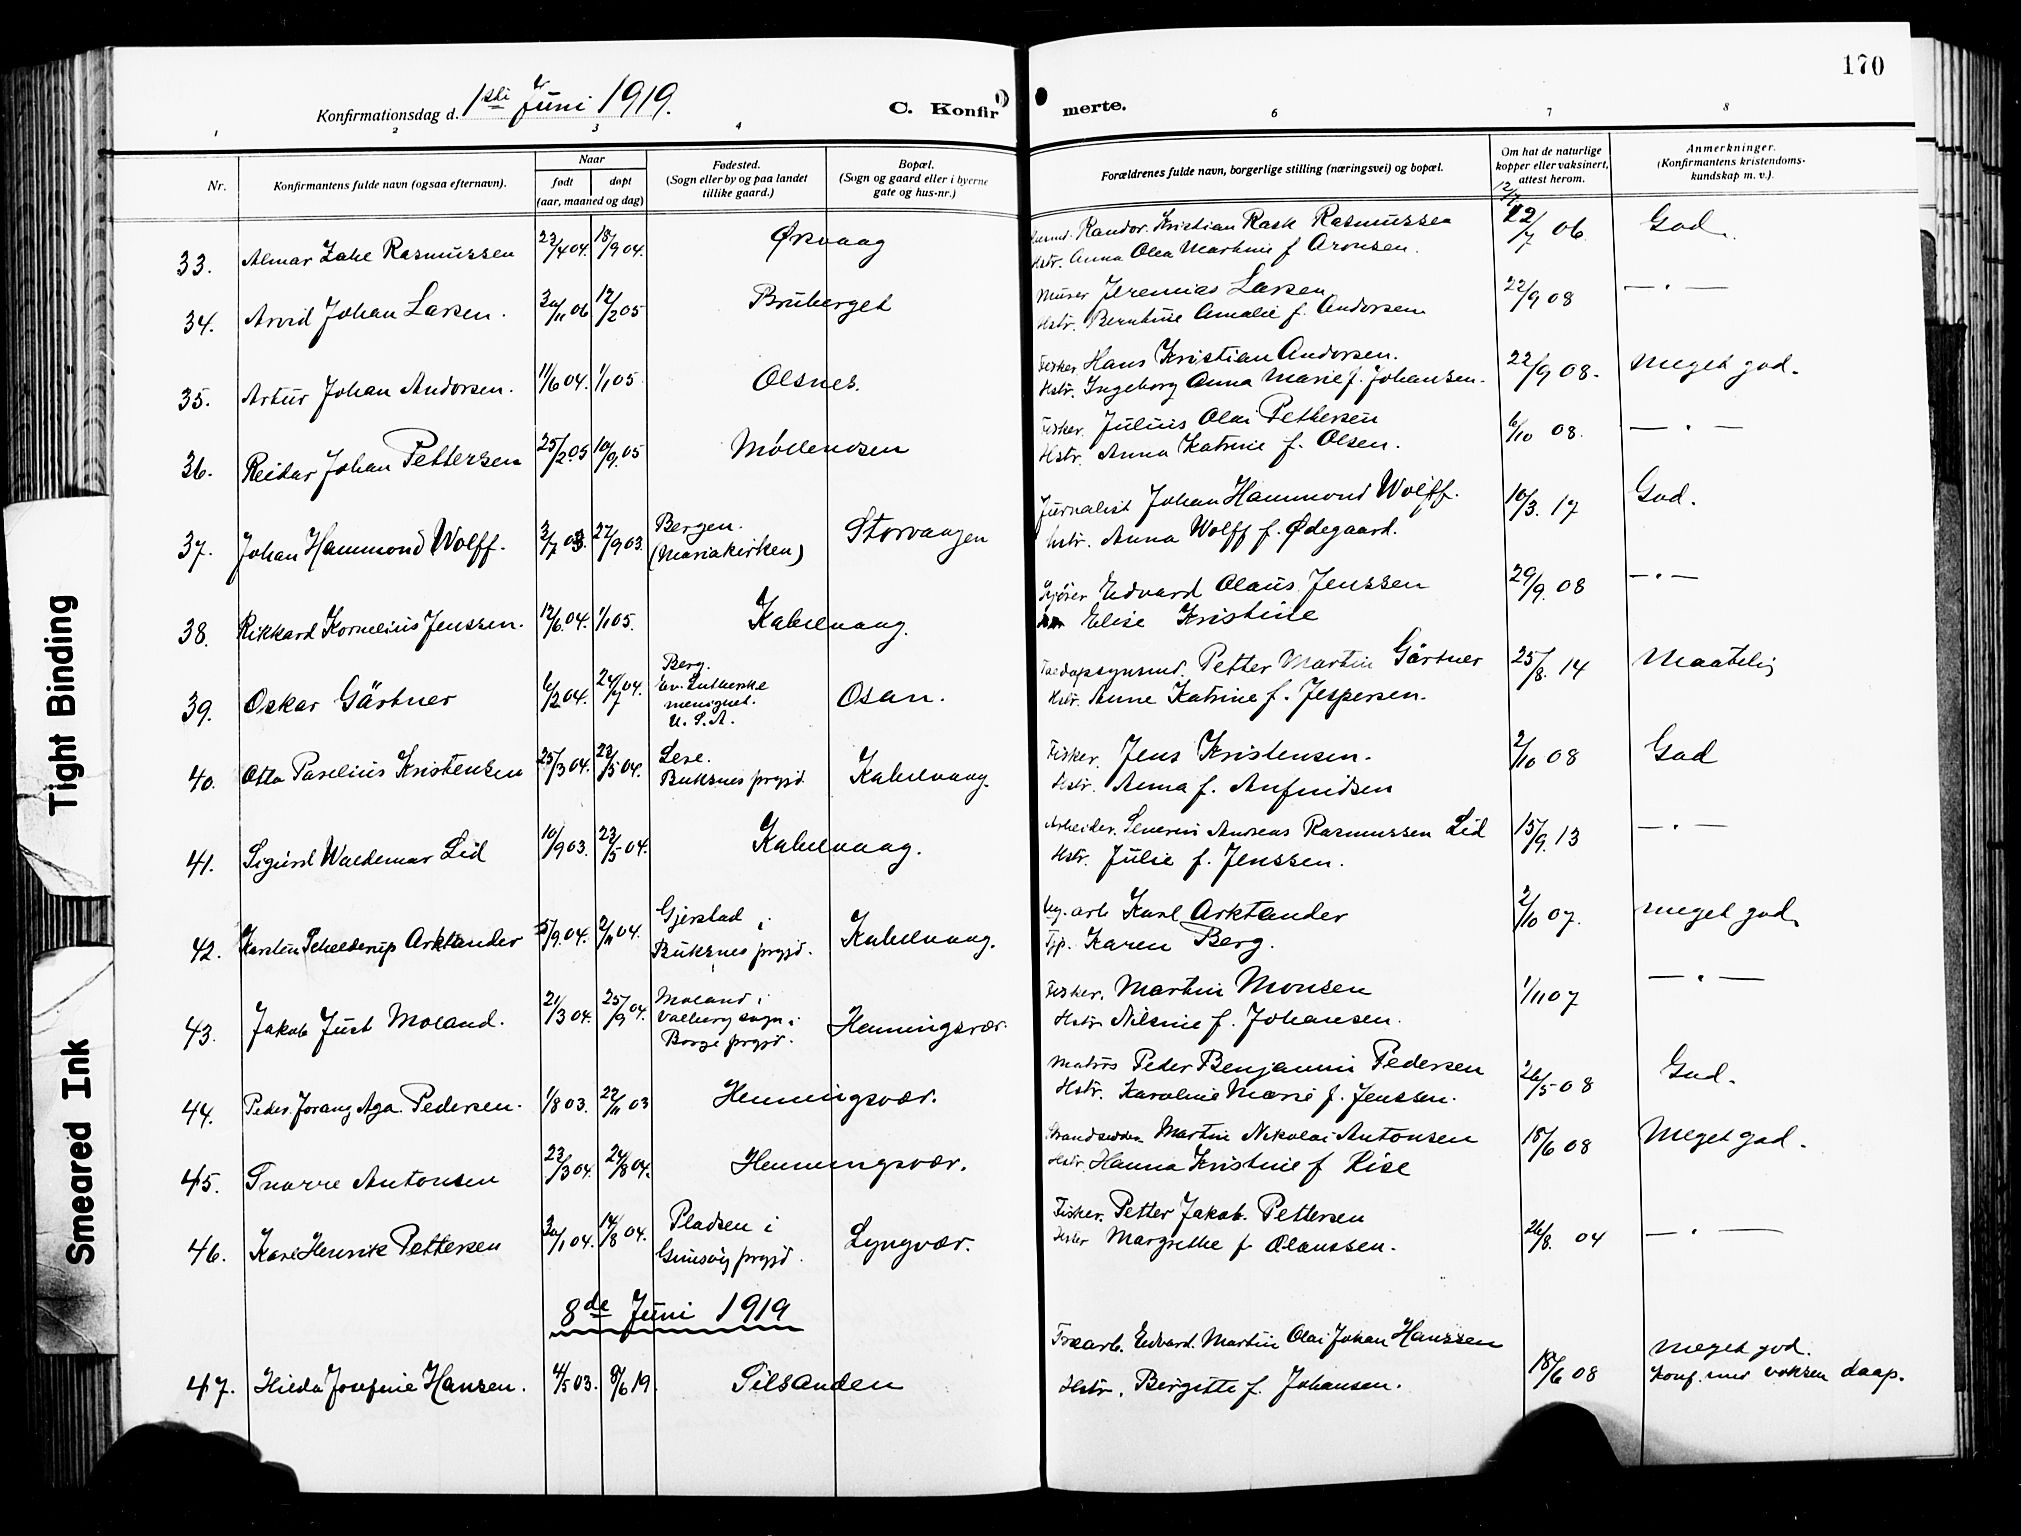 170
Konfirmationsdag d. 1ste Juni 1919.
C. Konfirmerte.
1 2 3 4 6 7 8
Nr.
Konfirmantens fulde navn (ogsaa efternavn).
Naar
født
døpt
(aar, maaned og dag)
Fødested.
(Sogn eller by og paa landet
tillike gaard.)
Bopæl.
(Sogn og gaard eller i byerne
gate og hus-nr.)
Forældrenes fulde navn, borgerlige stilling (næringsvei) og bopæl.
Om hat de naturlige
kopper eller vaksinert,
attest herom.
Anmerkninger.
(Konfirmantens kristendoms-
kundskap m. v.).
33. Almar Rasmussen 18/9 04. Ørsvaag Kristian Rask Rasmussen 06. God.
Hstr. Anna Olea Martine f. Aronsen.
34. Arvid Johan Larsen. 12/2 05 Bruberget Murer Jeremias Larsen 22/9 08 — " —
Hstr. Amalie f. Andorsen
35. Artur Johan Andorsen. 11/6 04. 1/1 05. Olsnes. Fisker Hans Kristian Andorsen. 22/9 08. Meget god.
Hstr. Ingeborg Anna Marie f. Johansen.
36. Reidar Johan Pettersen 25/2 05 10/9. 05 Møllenosen Fisker. Julius Olai Pettersen 6/10 08. — " —
Hstr. Anna Katrine f. Olsen.
37. Johan Hammond Wolff. 2/7 03. 27/9 03. Bergen. Storvaagen Journalist Johan Hammond Wolff. 10/3. 17 God.
(Mariakirken) hstr. Anna Wolff f. Ødegaard.
38. Rikkard Kornelius Jenssen. 12/6 04. 1/1 05. Kabelvaag. Edvard Olaus Jenssen 29/9. 08 — " —
Elise Kristine
39. Oskar Gärtner 6/2 04. 24/7 04. Berg. Osan. Petter Martin Gärtner 25/8. 14 Maatelig
ev. Lutherske
menighet.
U. S. A.
Hstr. Anne Katrine f. Jespersen.
40. Otto Paselius Kristensen 25/3 04. 23/5 04. Kabelvaag. Fisker. Jens Kristensen. 2/10 08 God
Buksnes prgjd. Hstr. Anna f. Anfindsen
41. Sigurd Waldemar Lid 10/9 03. 23/5 04. Kabelvaag. Arbeider. Severin Andreas Rasmussen Lid 15/9. 13 — " —
Hstr. Julie f. Jenssen.
42. Karsten Schelderup Arktander 5/9 04. Gjerstad i Kabelvaag. Karl Arktander 2/10 07. Meget god.
Buksnes prgjd. Karen Berg.
43. Jakob Just Moland. 21/3 04. 25/9 04. Moland i Henningsvær. Fisker. Martin Monsen 1/11 07 — " —
Valberg sogn i
Borge prgjd. Hstr. Nilsine f. Johansen.
44. Peder Aga. Pedersen. 1/8 03. 22/11 03 Henningsvær. Matros Peder Benjamin Pedersen 26/5 08 God.
Hstr. Karoline Marie f. Jenssen.
45. Snorre Antonsen 23/3 04. 24/8 04. Henningsvær. Strandsidder Martin Nikolai Antonsen 18/6 08 Meget god.
Hstr. Hanna Kristine f.
46. Karl Henrik Pettersen 30/1 04. 14/8 04. Pladsen i Lyngvær. Fisker. Petter Jakob. Pettersen 26/8. 04 — " —
Gimsøy prgjd. Margrethe f. Olaussen.
8de Juni 1919
47. Hilda Josefine Hansen. 4/5 03. 8/6 19. Silsanden Edvard Martin Olai Johan Hanssen 18/6 08 Meget god.
Hstr. Bergette f. Johansen. Konf. med voksen daap.
Tight Binding
Smeared Ink